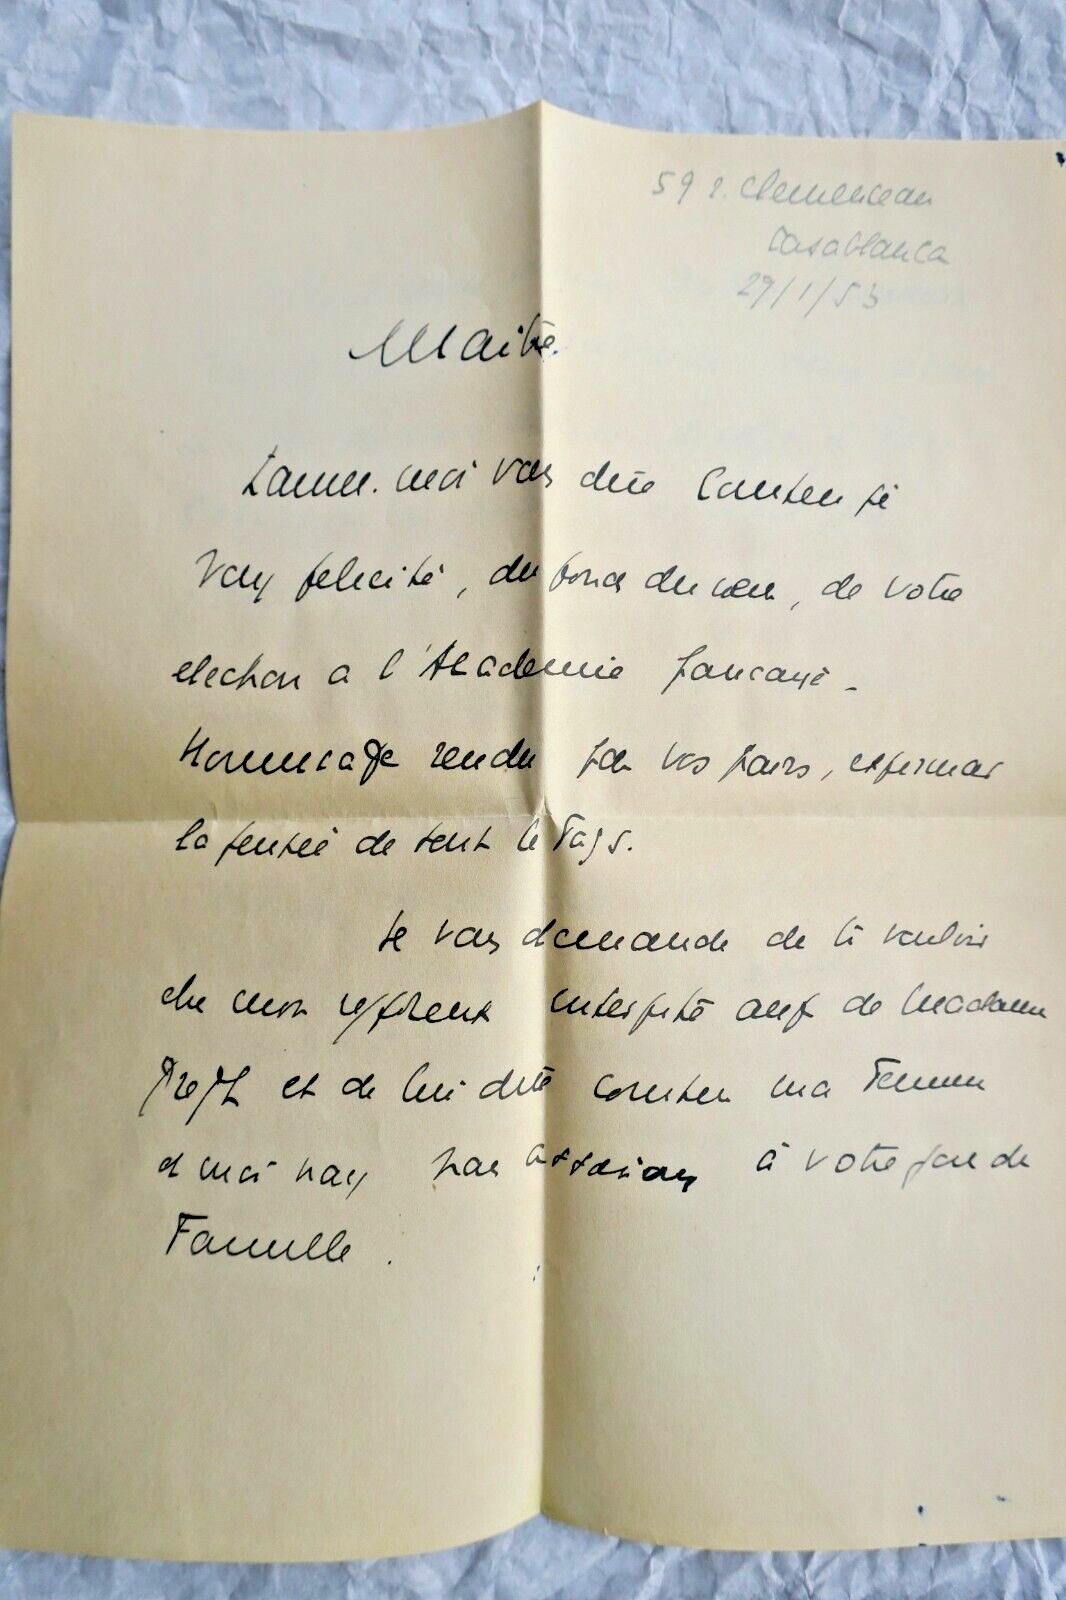 59 r. Clemenceau
Casablanca
29/1/53
Maître.
Laissez-moi vous dire Combien je
vous félicite, du fond du cœur, de votre
election a l'Académie française -
Hommage rendu par vos pairs, exprimant
la pensée de tout le Pays.
Je vous demande de bien vouloir
être mon interprète aup de Madame
et de lui dire combien ma Femme
et moi nous nous associons à votre grande
Famille.